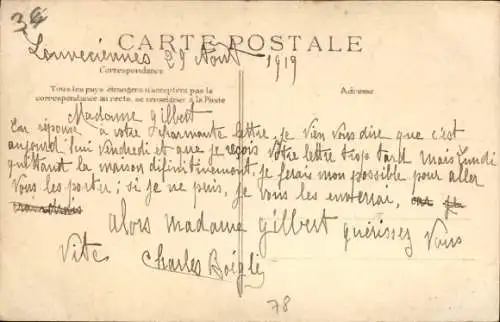 36
CARTE POSTALE
Louveciennes 29 Aout 1919
Correspondance
Adresse
Tous les pays étrangers n'acceptent pas la
correspondance au recto, se renseigner à la Poste
Madame Gilbert
En réponse à votre charmante lettre, je vien vous dire que c'est
aujourd'hui vendredi et que je reçois votre lettre trop tard mais lundi
quittant la maison difinitivement, je ferais mon possible pour aller
vous les porter; si je ne puis, je vous les enverrai,
Alors Madame Gilbert guérissez vous
vite
Charles
78